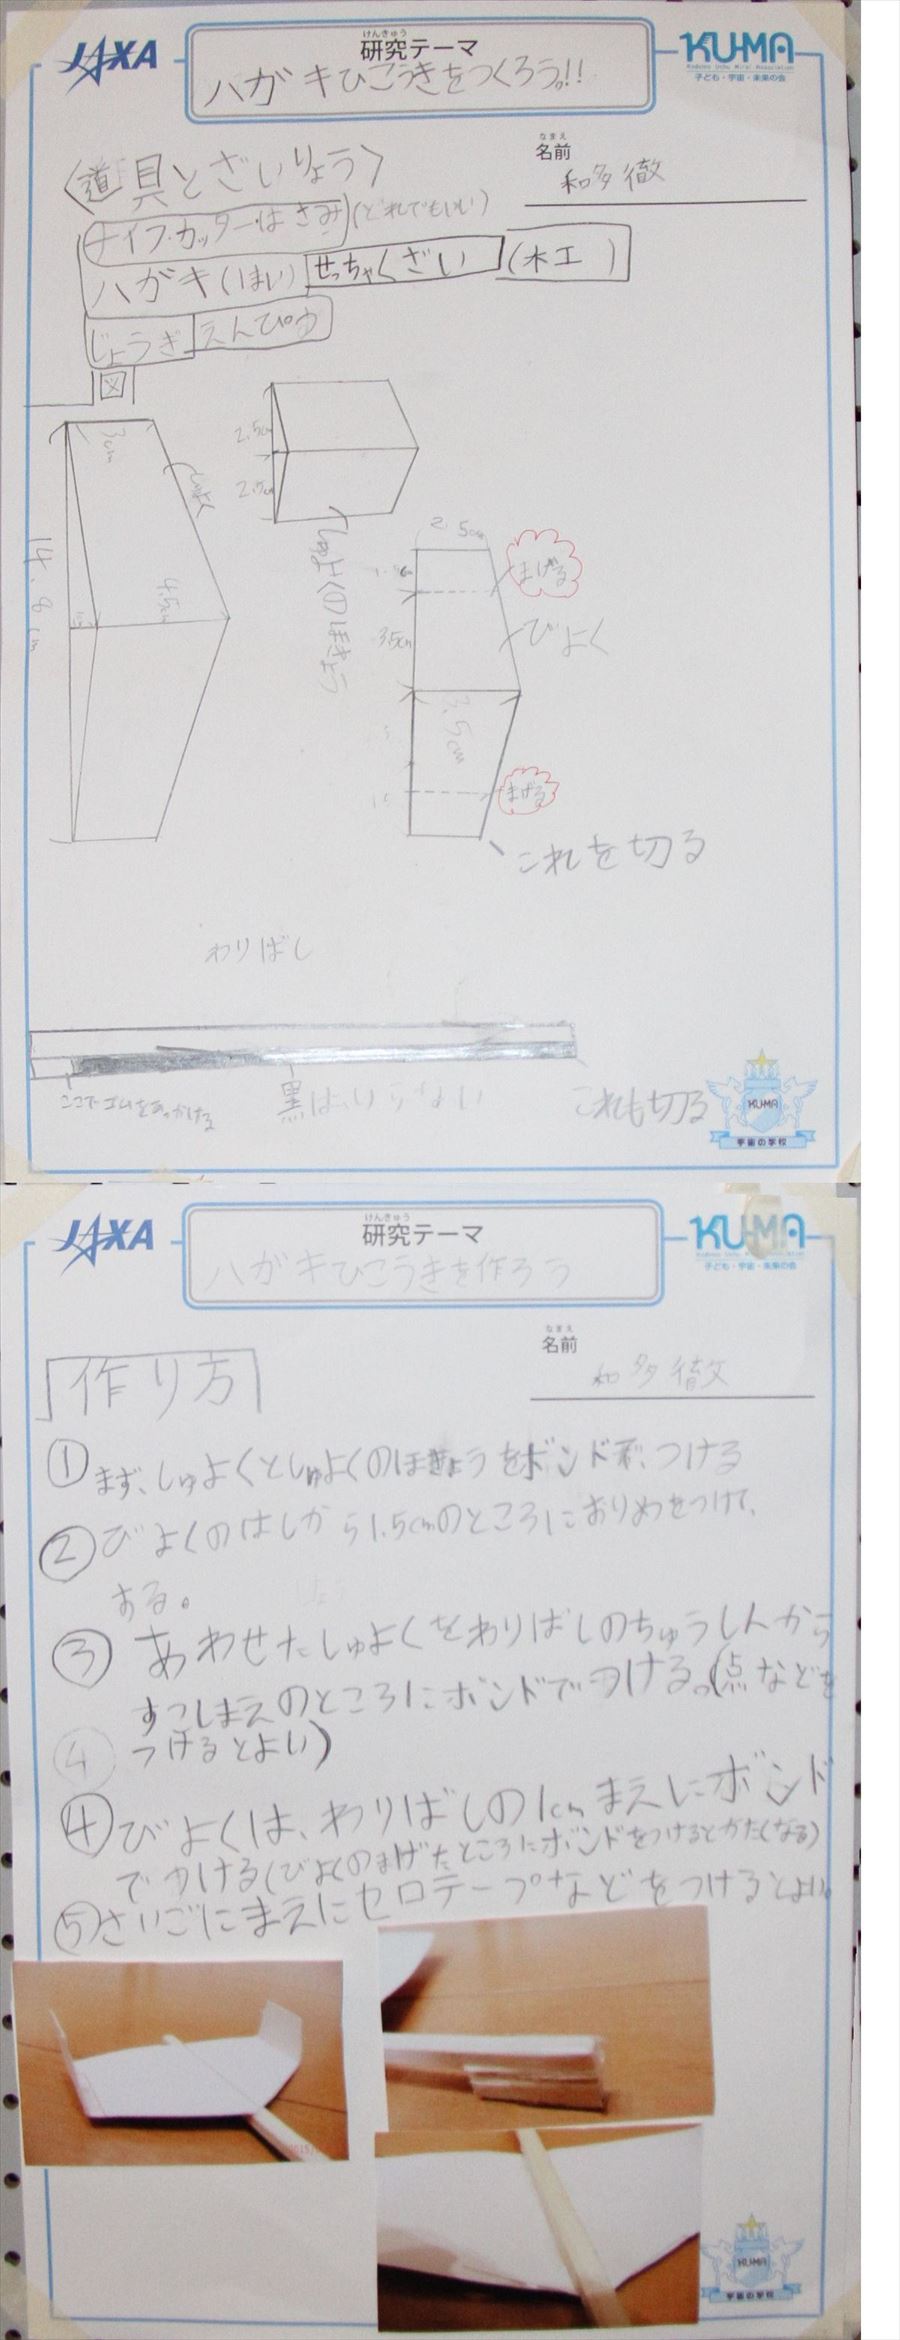 JAXA
けんきゅう
研究テーマ
ハガキひこうきをつくろう!!
KU-MA
Kodomo Uchu Mirai Association
子ども・宇宙・未来の会
なまえ
名前
和多徹
〈道具とざいりょう〉
ナイフ・カッター・はさみ(どれでもいい)
ハガキ(はい) せっちゃくざい (木工)
じょうぎ えんぴつ
図
3cm
しゅよく
14.8cm
4.5cm
2.5cm
2.5cm
しゅよくのほきょう
2.5cm
まげる
3.5cm
びよく
3.5cm
まげる
これを切る
わりばし
ここでゴムをひっかける
黒は、いらない
これも切る
KU-MA
宇宙の学校
JAXA
けんきゅう
研究テーマ
ハガキひこうきを作ろう
KU-MA
Kodomo Uchu Mirai Association
子ども・宇宙・未来の会
なまえ
名前
和多徹
作り方
①まず、しゅよくとしゅよくのほきょうをボンドで、つける
②びよくのはしから1.5cmのところにおりめをつけて、
する。
③あわせたしゅよくをわりばしのちゅうしんから
すこしまえのところにボンドでつける。(点などを
④つけるとよい)
④びよくは、わりばしの1cmまえにボンド
でつける(びよくのまげたところにボンドをつけるとかたくなる)
⑤さいごにまえにセロテープなどをつけるとよい。
KU-MA
宇宙の学校